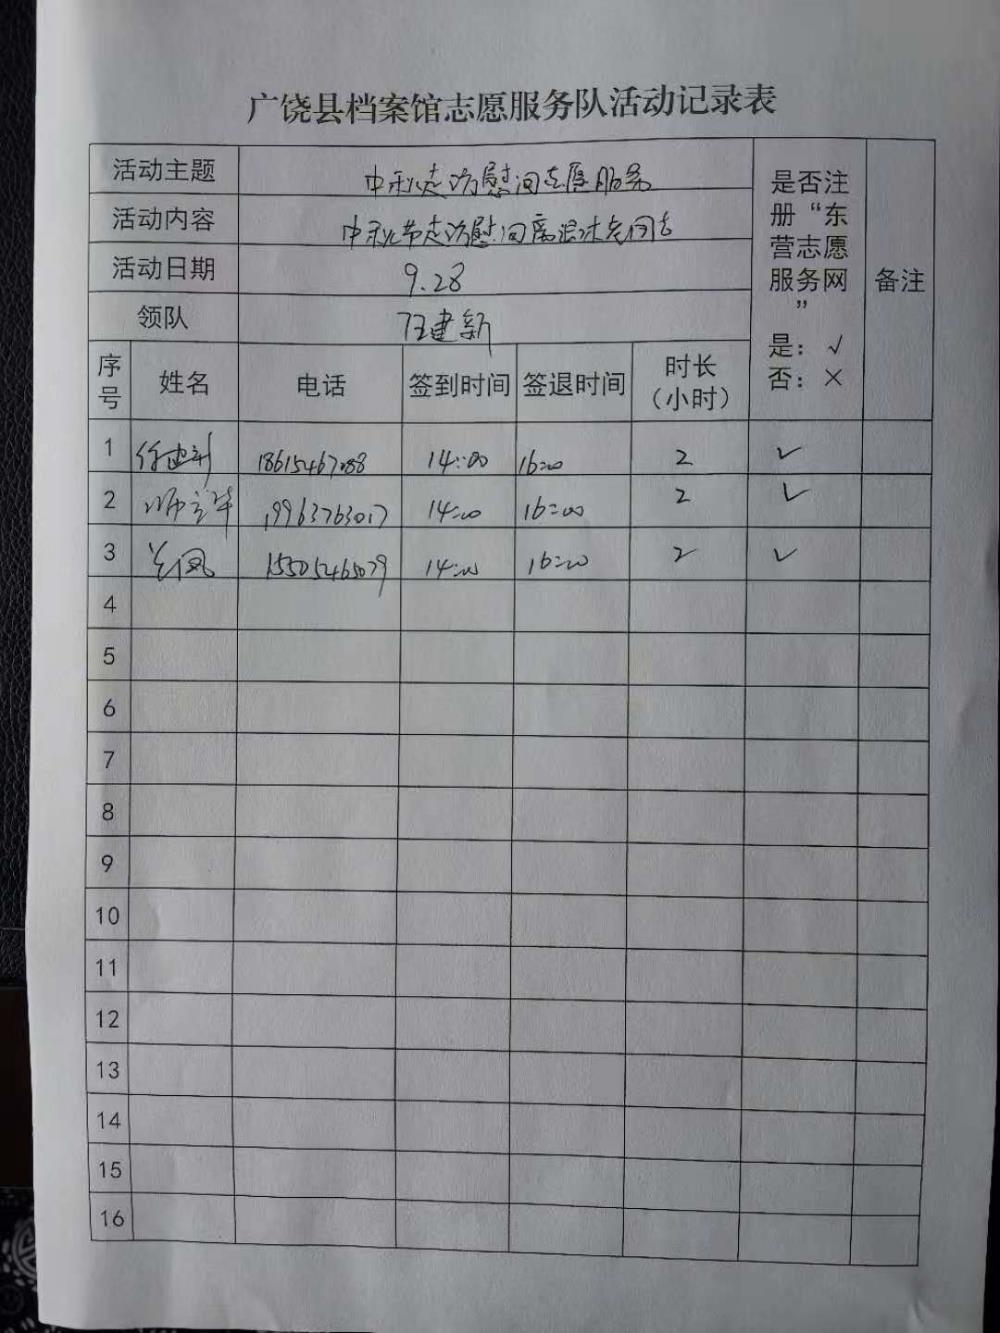 广饶县档案馆志愿服务队活动记录表
活动主题 中秋走访慰问志愿服务
活动内容 中秋节走访慰问离退休老同志
活动日期 9.28
领队 汪建新
序号 姓名 电话 签到时间 签退时间 时长（小时） 是否注册“东营志愿服务网” 是：√ 否：× 备注
1 14:00 16:00 2 ✓
2 19963763017 14:00 16:00 2 ✓
3 15505465079 14:00 16:00 2 ✓
4
5
6
7
8
9
10
11
12
13
14
15
16